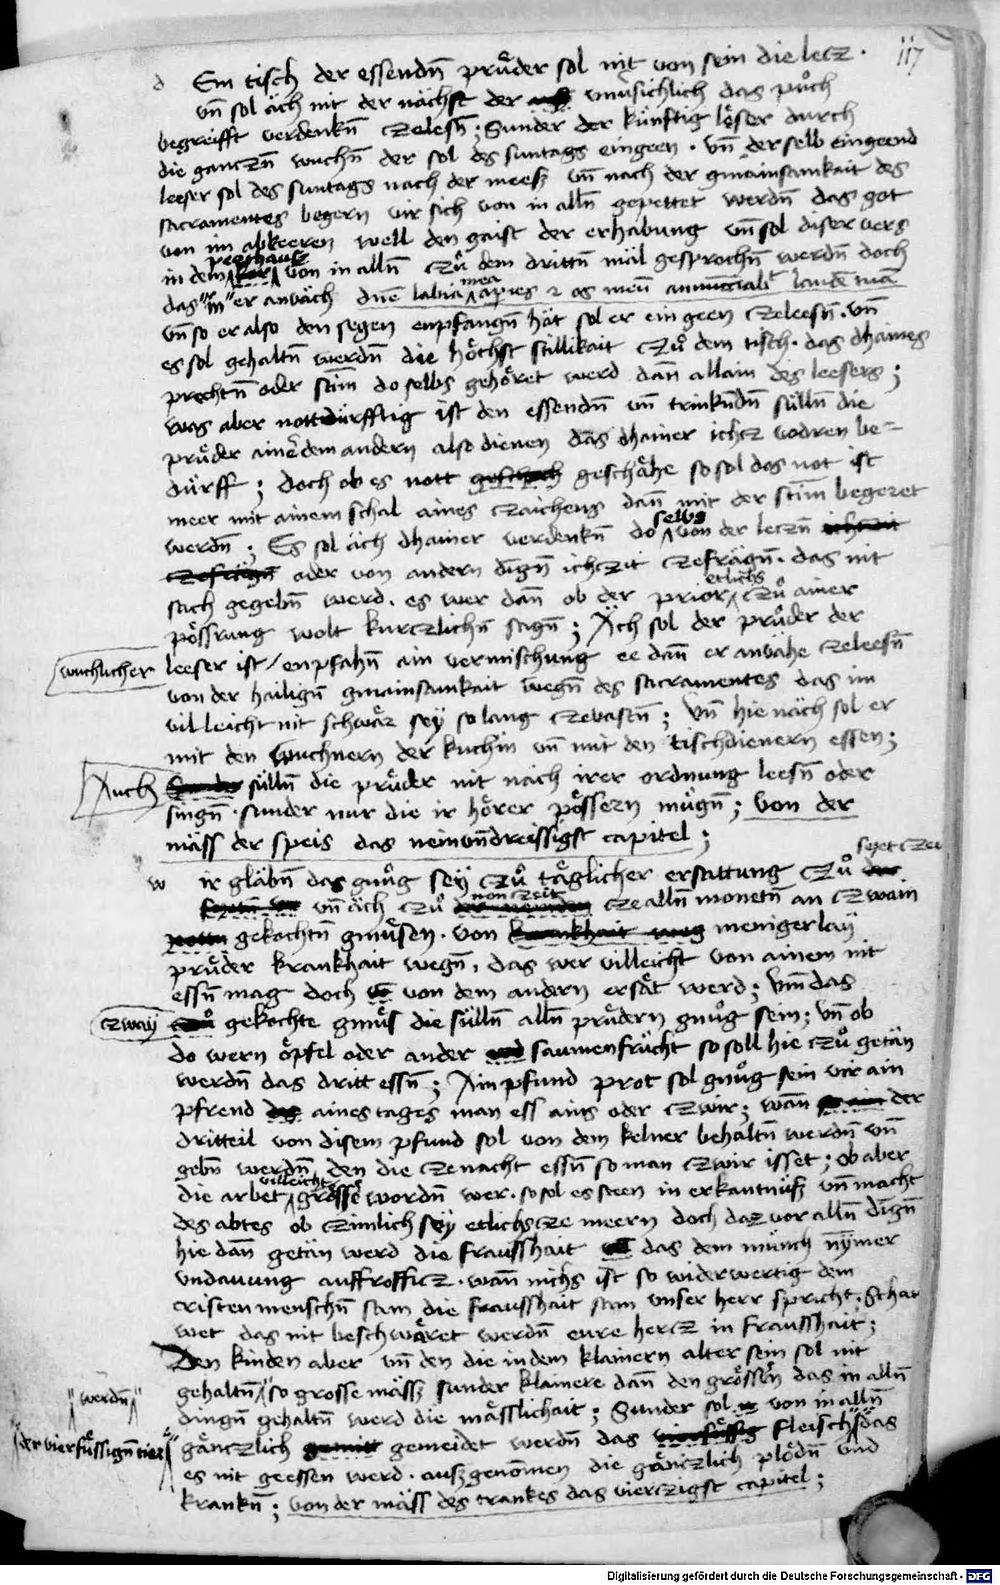 117
d Em tisch der essendn̄ průder sol nit von sein die lecz .
vn̄ sol äch nit der nächst der vnuͤrsichlich das půch
begreifft verdenkn̄ czelesn̄ ; Sunder der künftig löser durch
die ganczn̄ wuchn̄ der sol des suntags eingeen . vn̄ der selb eingeend
leeser sol des suntags nach der mess vn̄ nach der gmainsamkait des
sacramentes begern vir sich von in alln̄ gepettet werdn̄ das got
von im abkeeren well den gaist der erhabung vn̄ sol diser vers
pethaus
in dem von in alln̄ czů dem drittn̄ mäl gesprochn̄ werdn̄ doch
mea
das er anväch dn̄e labia apies ⁊ os meū annunctiabt̄ laudē tuā
vn̄ so er also den segen enpfangn̄ hät sol er ein geen czeleesn̄ . vn̄
es sol gehaltn̄ werdn̄ die höchst stillikait czů dem tisch . das dhaines
prechtn̄ oder stim̄ do selbs gehöret werd dan̄ allain des leesers ;
was aber nottdürfftig ist den essendn̄ vn̄ trinkndn̄ sülln̄ die
prüder ainer dem andern also dienen das dhainer ichcz vodren be-
dürff ; doch ob es nott geschähe so sol das not ist
meer mit ainem schal aines czaichens dan̄ mit der stim̄ begeret
selbs
werdn̄ ; Es sol äch dhainer verdenkn̄ do von der leczn̄
oder von andern dign̄ ichczit czefrägn̄ . das nit
etlichs
stach gegebn̄ werd . es wer dan̄ ob der prior czů ainer
pössrung wolt kurczlichn̄ sagn̄ ; Äch sol der průder der
wuchlicher
leeser ist / enpfahn̄ ain vermischung ee dan̄ er anvähe czeleesn̄
von der hailign̄ gmainsamkait wegn̄ des sacramentes das im
villeicht nit schwär sey so lang czevastn̄ ; Vn̄ hie näch sol er
mit den wuchnern der kuchin vn̄ mit den tischdienern essen ;
Auch
sülln̄ die prüder nit näch irer ordnung leesn̄ oder
singn̄ . sunder nur die ir hörer pössern mügn̄ ; von der
mäss der speis das neinvndreissigist capitel ;
w ir gläbn̄ das gnůg sey czů täglicher ersattung czů
vn̄ äch czů cze alln̄ monetn̄ an czwain
gekochtn̄ gmüsen . von menigerlay
prüder krankhait wegn̄ . das wer villeicht von ainem nit
essn̄ mag doch von dem andern ersät werd ; Vm̄ das
czway
gekochte gmüs die sülln̄ alln̄ prüdern gnůg sein ; vn̄ ob
do wern öpfel oder ander saumenfrücht so soll hie czů getän
werdn̄ das dritt essn̄ ; Ain pfund prot sol gnůg sein vir ain
pfrend aines tages man ess ains oder czwir ; wan̄ der
dritteil von disem pfund sol von dem kelner behaltn̄ werdn̄ vn̄
gebn̄ werdn̄ den die czenacht essn̄ so man czwir isset ; ob aber
villeicht
die arbet grösse wordn̄ wer . so sol es steen in erkantnüss vn̄ macht
des abtes ob czimlich sey etlichs cze meern doch daz vor alln̄ dign̄
hie dan̄ getän werd die frassheit das dem münch nymer
vndauung auffrofficz . wan̄ nichs ist so widerwertig dem
cristen menschn̄ sam die frassheit sam vnser herr spricht . Schaw
wet das nit beschwäret werdn̄ eure hercz in frassheit ;
Den kinden aber vn̄ den die in dem klainern alter sein sol nit
werdn̄
gehaltn̄ so grosse mäss sunder klainere dan̄ den grössern das in alln̄
dingn̄ gehaltn̄ werd die mässlichait ; Sunder sol von in alln̄
der vierfüssign̄ tier
gänczlich gemeidet werdn̄ das fleisch das
es nit geessen werd . aussgenomen die gänczlich plödn̄ vnd
krankn̄ ; von der mäss des trankes das vierczigist capitel ;
Digitalisierung gefördert durch die Deutsche Forschungsgemeinschaft - DFG